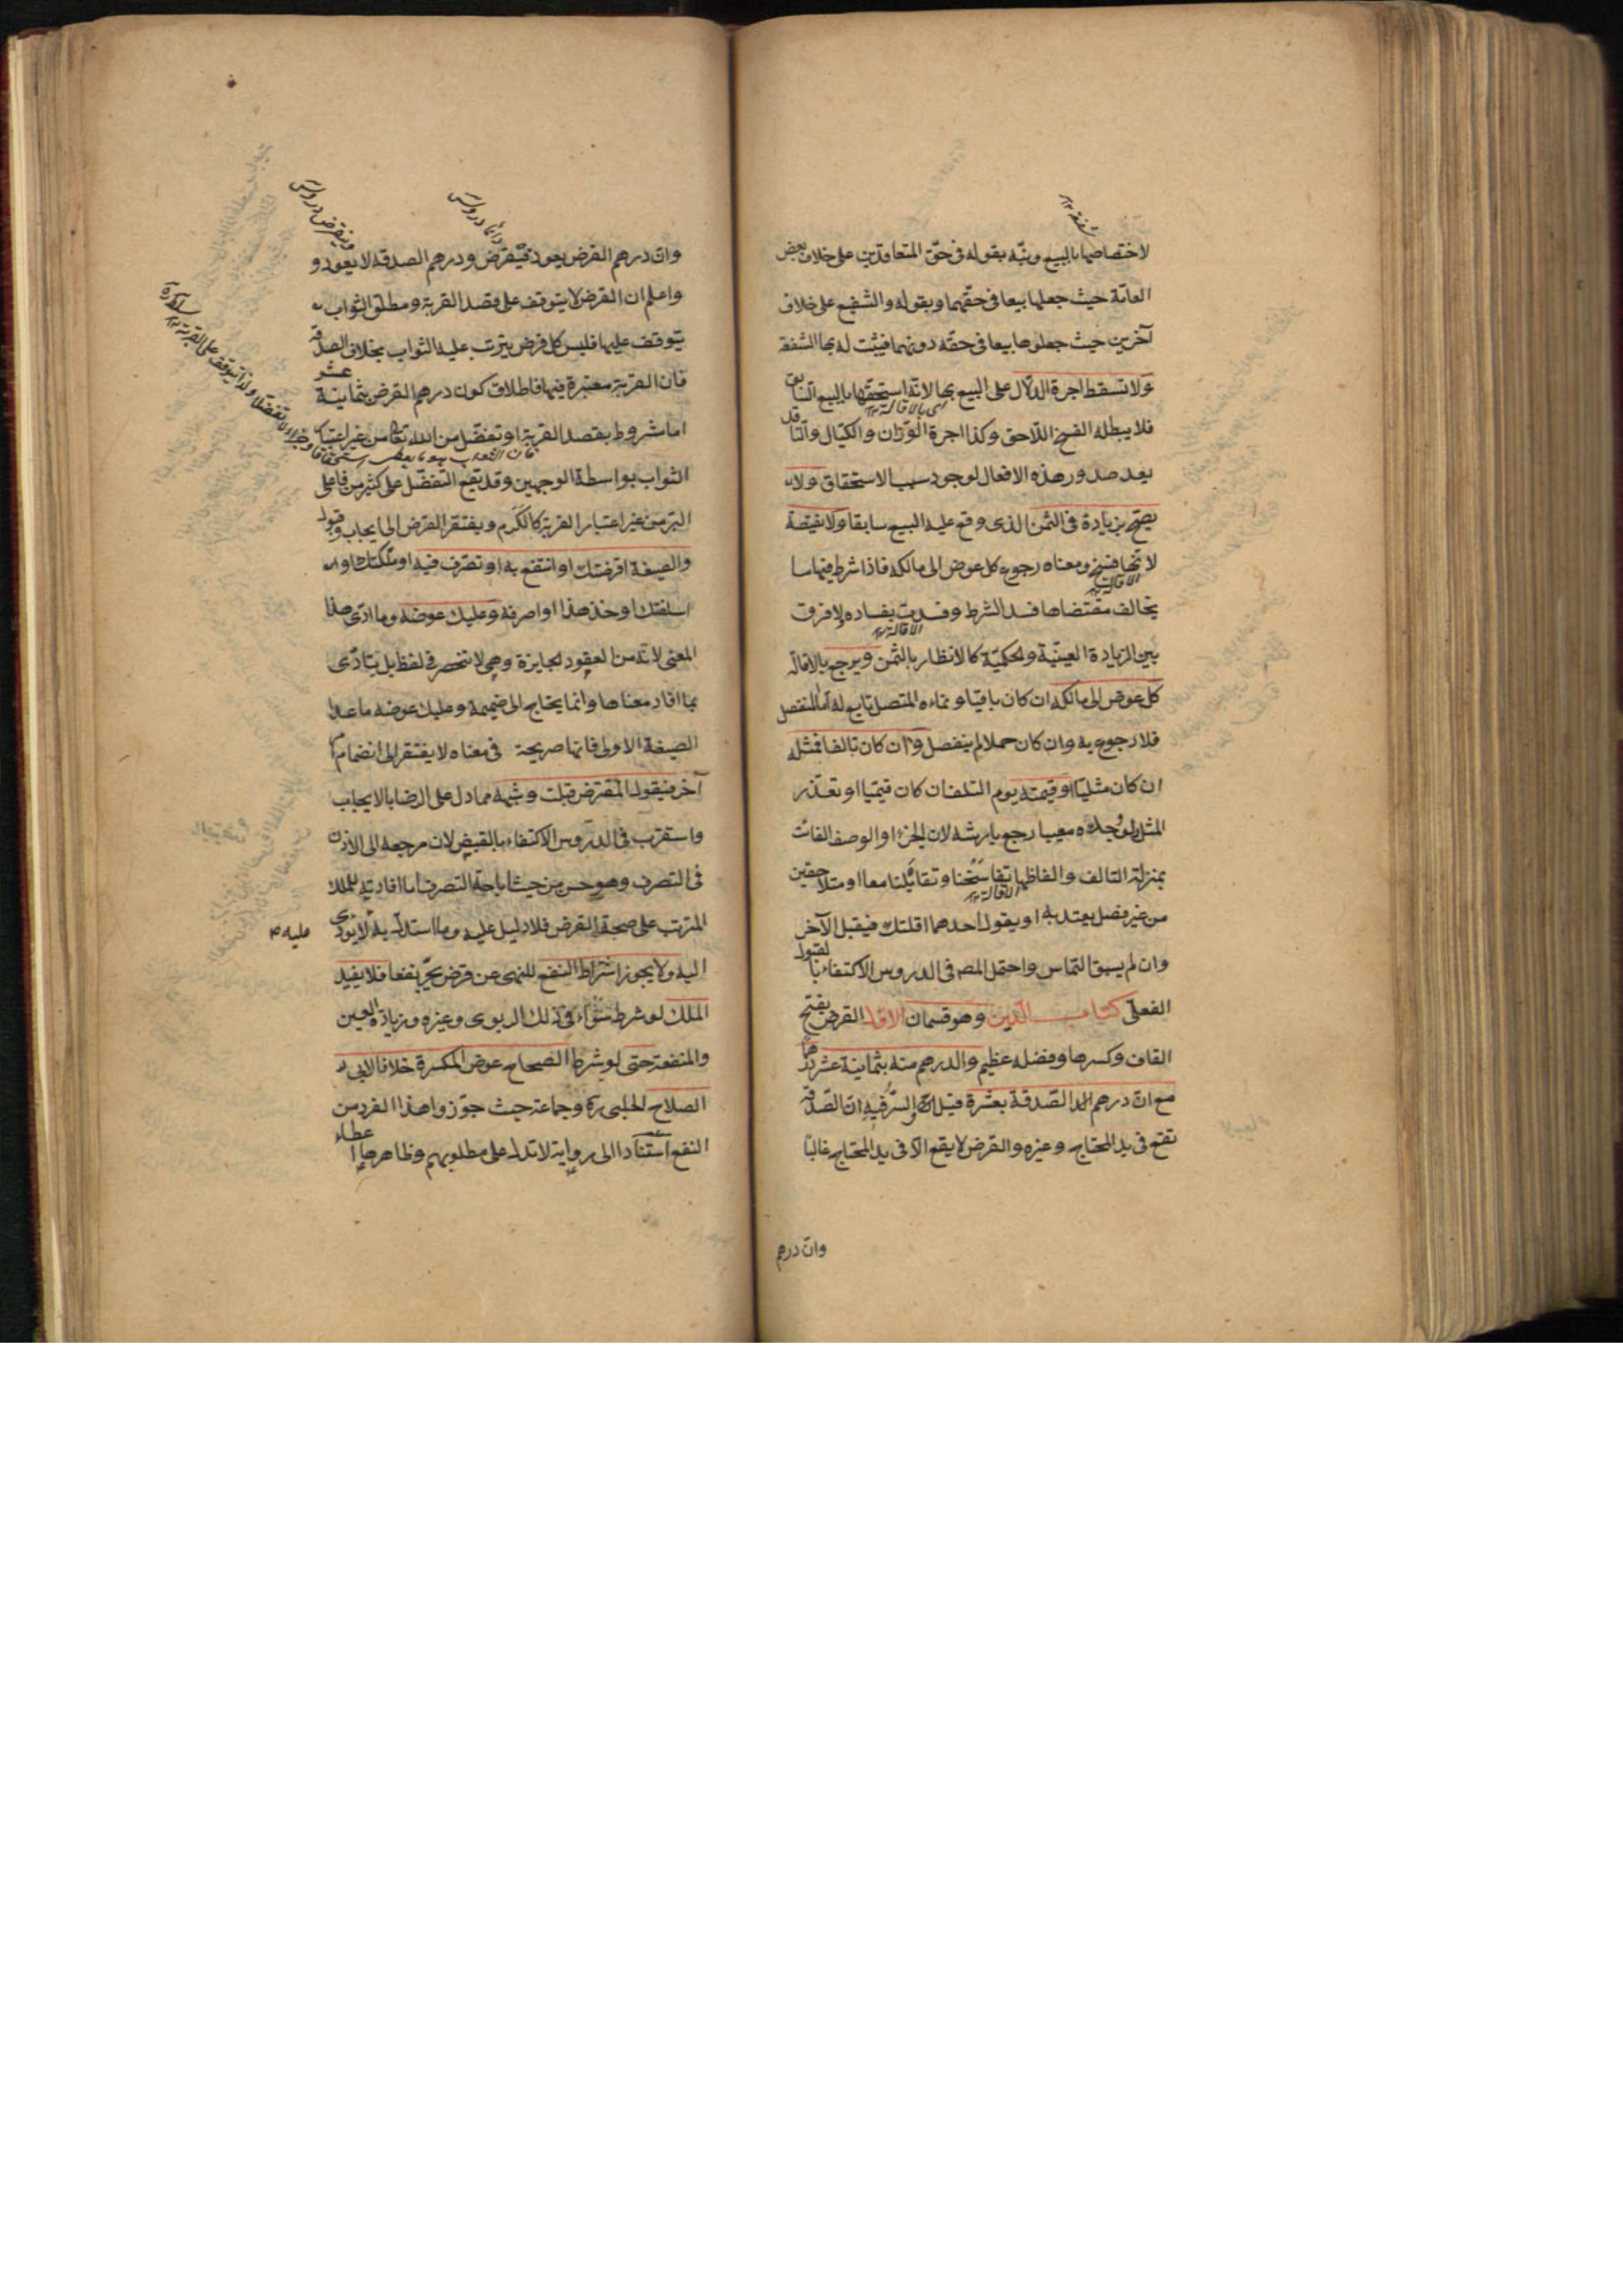 لاختصاصها بالبيع ونبّه بقوله فى حقّ المتعاقدين على خلاف بعض
العامّة حيث جعلها بيعا فى حقّهما وبقوله والشفيع على خلاف
آخرين حيث جعلوها بيعا فى حقّه دونهما فيثبت له بها الشفعة
ولا تسقط اجرة الدلّال على البيع بها لانّه استحقّها بالبيع السّابق
اى بالاقالة ١٢
فلا يبطله الفسخ اللّاحق وكذا اجرة الوزّان والكيّال والنّاقل
بعد صدور هذه الافعال لوجود سبب الاستحقاق ولا
يصحّ بزيادة فى الثمن الذى وقع عليه البيع سابقا ولا نقيصة
لانّها فسخ ومعناه رجوع كل عوض الى مالكه فاذا شرط فيها ما
الاقالة ١٢
يخالف مقتضاها فسد الشرط وفسدت بفساده ولا فرق
الاقالة ١٢
بين الزيادة العينيّة والحكميّة كالانظار بالثمن ويرجع بالاقالة
كل عوض الى مالكه ان كان باقيا ونماءه المتصل تابع له اما المنفصل
فلا رجوع به وان كان حملا لم ينفصل وان كان تالفا فمثله
ان كان مثليّا او قيمته يوم التلف ان كان قيميّا او تعذّر
المثل ولو وجده معيبا رجع بارشه لان الجزء او الوصف الفائت
بمنزلة التالف والفاظها تفاسخنا وتقايلنا معا او متلاحقين
الاقالة ١٢
من غير فصل يعتد به او يقول احدهما اقلتك فيقبل الآخر
وان لم يسبق التماس واحتمل المصـ فى الدروس الاكتفاء بالقبول
الفعلى كتاب الدّين وهو قسمان الاوّل القرض بفتح
القاف وكسرها وفضله عظيم والدرهم منه بثمانية عشر درهما
مع انّ درهم الصّدقة بعشرة قيل والسرّ فيه انّ الصّدقة
تقع فى يد المحتاج وغيره والقرض لا يقع الّا فى يد المحتاج غالبا
وان درهم
دائما دروس
وينقرض دروس
وان درهم القرض يعود فيقرض ودرهم الصدقة لا يعود و
واعلم ان القرض لا يتوقف على قصد القربة ومطلق الثواب
يتوقف عليها فليس كل قرض يترتب عليه الثواب بخلاف الصدقة
فان القربة معتبرة فيها فاطلاق كون درهم القرض بثمانية عشر
اما مشروط بقصد القربة او تفضل من الله تعالى من غير اعتبار
الثواب بواسطة الوجهين وقد يقع التفضل على كثير من فاعلى
البرّ من غير اعتبار القربة كالكرم ويفتقر القرض الى ايجاب وقبول
والصيغة اقرضتك او انتفع به او تصرّف فيه او ملّكتك او
اسلفتك او خذ هذا او اصرفه وعليك عوضه وما ادّى هذا
المعنى لانّه من العقود الجايزة وهى لا تنحصر فى لفظ بل يتادّى
بما افاد معناها وانما يحتاج الى ضميمة وعليك عوضه ما عدا
الصيغة الاولى فانها صريحة فى معناه لا يفتقر الى انضمام امر
آخر فيقول المقترض قبلت وشبهه مما دل على الرضا بالايجاب
واستقرب فى الدروس الاكتفاء بالقبض لان مرجعه الى الاذن
فى التصرف وهو حسن من حيث اباحة التصرف اما افادته للملك
المترتب على صحة القرض فلا دليل عليه وما استدل به لا يؤدى
عليه ص
اليه ولا يجوز اشتراط النفع للنهى عن قرض يجرّ نفعا فلا يفيد
الملك لو شرط سواء فى ذلك الربوى وغيره وزيادة العين
والمنفعة حتى لو شرط الصحاح عوض المكسرة خلافا لابى
الصلاح الحلبى ره وجماعة حيث جوّزوا هذا الفرد من
النفع استنادا الى رواية لا تدل على مطلوبهم وظاهرها اعطاء